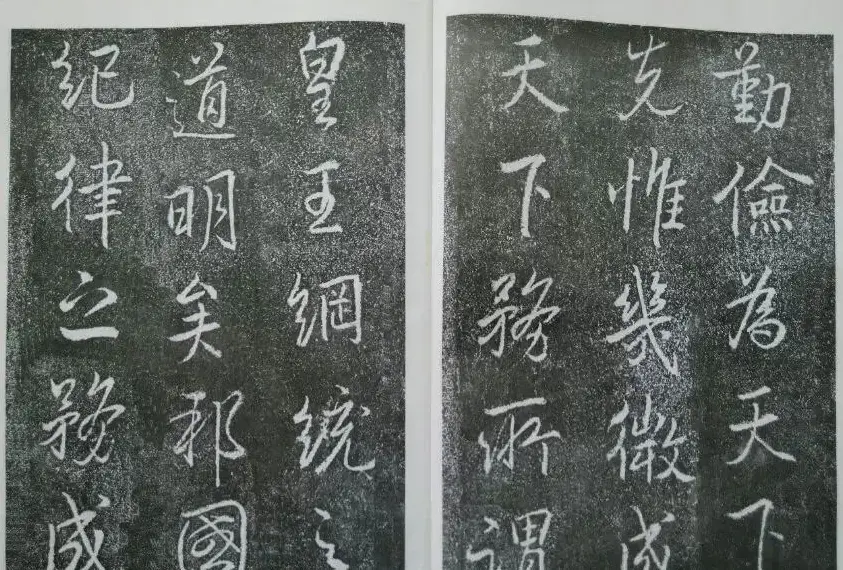 勤儉為天下
先惟幾微成
天下務所謂
皇王綱統之
道明矣邦國
紀律之務成